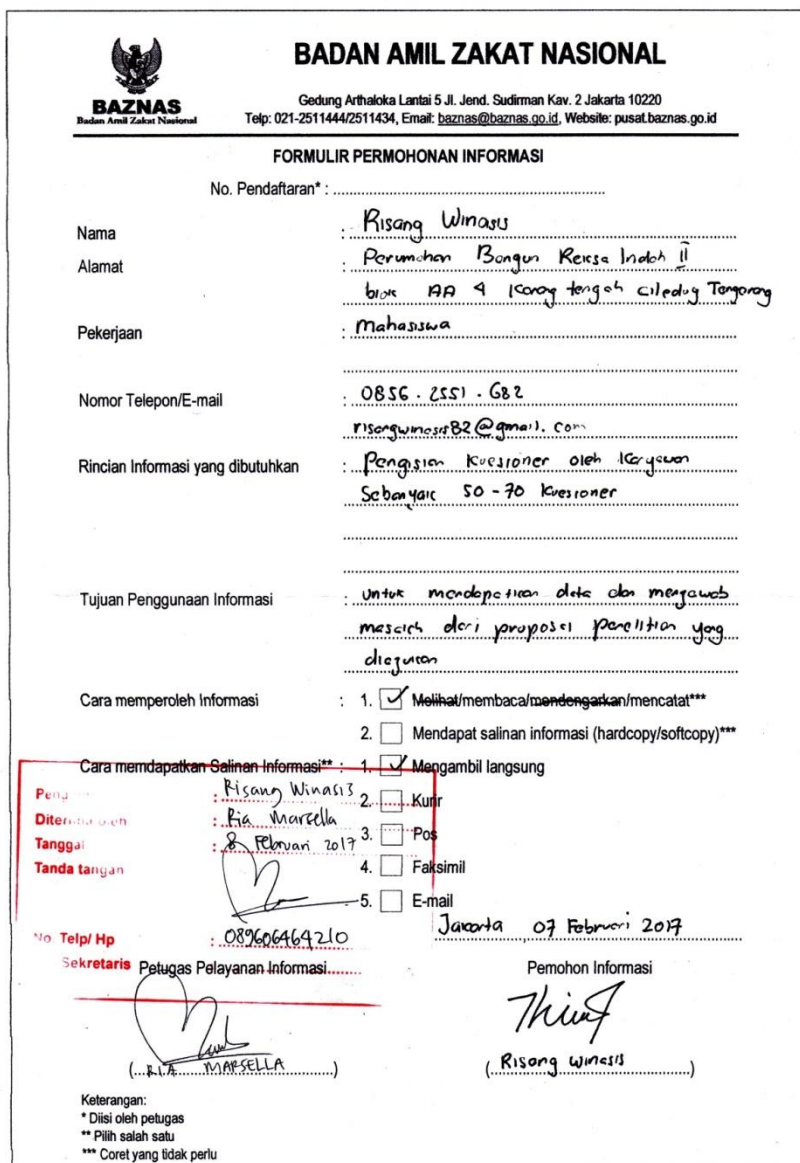 BADAN AMIL ZAKAT NASIONAL
BAZNAS
Badan Amil Zakat Nasional
Gedung Arthaloka Lantai 5 Jl. Jend. Sudirman Kav. 2 Jakarta 10220
Telp: 021-2511444/2511434, Email: baznas@baznas.go.id, Website: pusat.baznas.go.id
FORMULIR PERMOHONAN INFORMASI
No. Pendaftaran* :
Nama : Risang Winasis
Alamat : Perumahan Bangun Reksa Indah II
blok AA 4 Karang tengah Ciledug Tangerang
Pekerjaan : Mahasiswa
Nomor Telepon/E-mail : 0856 . 2551 . 682
risangwinasis82@gmail.com
Rincian Informasi yang dibutuhkan : Pengisian Kuesioner oleh Karyawan
Sebanyak 50 - 70 Kuesioner
Tujuan Penggunaan Informasi : untuk mendapatkan data dan menjawab
masalah dari proposal penelitian yang
diajukan
Cara memperoleh Informasi : 1. Melihat/membaca/mendengarkan/mencatat***
2. Mendapat salinan informasi (hardcopy/softcopy)***
Cara memdapatkan Salinan Informasi** : 1. Mengambil langsung
: Risang Winasis 2. Kurir
Diterima oleh : Ria Marsella
Tanggal : 8 Februari 2017 3. Pos
Tanda tangan 4. Faksimil
5. E-mail
Jakarta, 07 Februari 2017
No. Telp/ Hp : 089606464210
Sekretaris Petugas Pelayanan Informasi
Pemohon Informasi
( RIA MARSELLA ) ( Risang Winasis )
Keterangan:
* Diisi oleh petugas
** Pilih salah satu
*** Coret yang tidak perlu